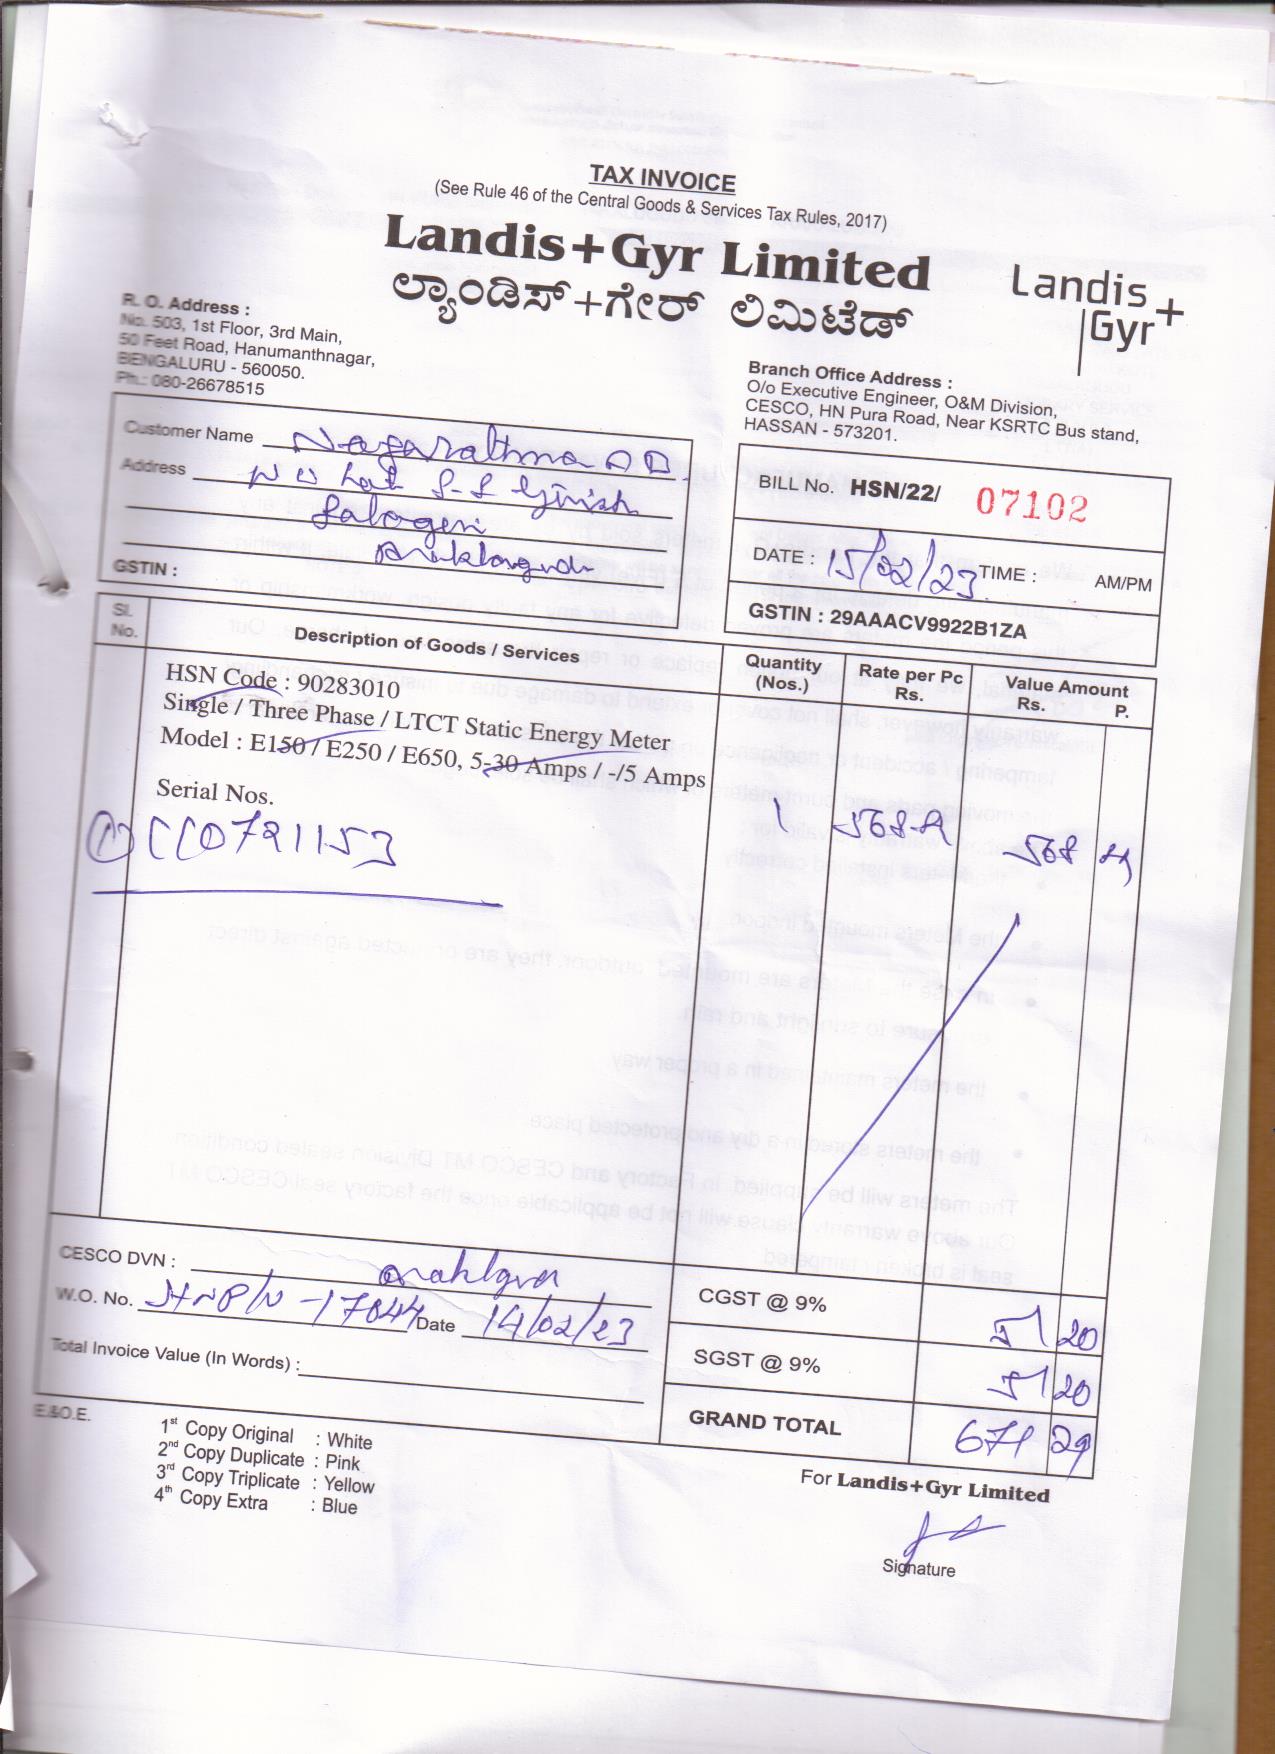 TAX INVOICE
(See Rule 46 of the Central Goods & Services Tax Rules, 2017)
Landis+Gyr Limited
ಲ್ಯಾಂಡಿಸ್+ಗೇರ್ ಲಿಮಿಟೆಡ್
Landis+
Gyr
R. O. Address :
No. 503, 1st Floor, 3rd Main,
50 Feet Road, Hanumanthnagar,
BENGALURU - 560050.
Ph.: 080-26678515
Branch Office Address :
O/o Executive Engineer, O&M Division,
CESCO, HN Pura Road, Near KSRTC Bus stand,
HASSAN - 573201.
Customer Name Nagarathna
Address
GSTIN :
BILL No. HSN/22/ 07102
DATE : 15/02/23 TIME : AM/PM
GSTIN : 29AAACV9922B1ZA
Sl. No. Description of Goods / Services Quantity (Nos.) Rate per Pc Rs. Value Amount Rs. P.
HSN Code : 90283010
Single / Three Phase / LTCT Static Energy Meter
Model : E150 / E250 / E650, 5-30 Amps / -/5 Amps
Serial Nos.
1 568 568
CESCO DVN :
W.O. No. Date 14/02/23
Total Invoice Value (In Words) :
CGST @ 9% 51 20
SGST @ 9% 51 20
GRAND TOTAL 671 29
E.&O.E.
1st Copy Original : White
2nd Copy Duplicate : Pink
3rd Copy Triplicate : Yellow
4th Copy Extra : Blue
For Landis+Gyr Limited
Signature